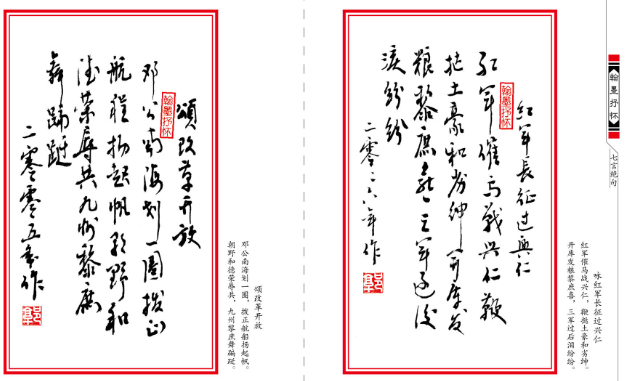 翰墨抒怀
七言绝句
咏红军长征过兴仁
红军催马战兴仁，鞭挞土豪和劣绅。
开库发粮黎庶喜，三军过后泪纷纷。
红军长征过兴仁
翰墨抒怀
红军催马战兴仁鞭
挞土豪和劣绅开库发
粮黎庶喜三军过后
泪纷纷
六年作
颂改革开放
邓公南海划一圈，拨正航船扬起帆。
朝野和德荣辱共，九州黎庶舞蹁跹。
頌改革开放
翰墨抒怀
邓公南海划一圈拨正
航程扬起帆朝野和
德荣辱共九州黎庶
舞蹁跹
二零零五年作